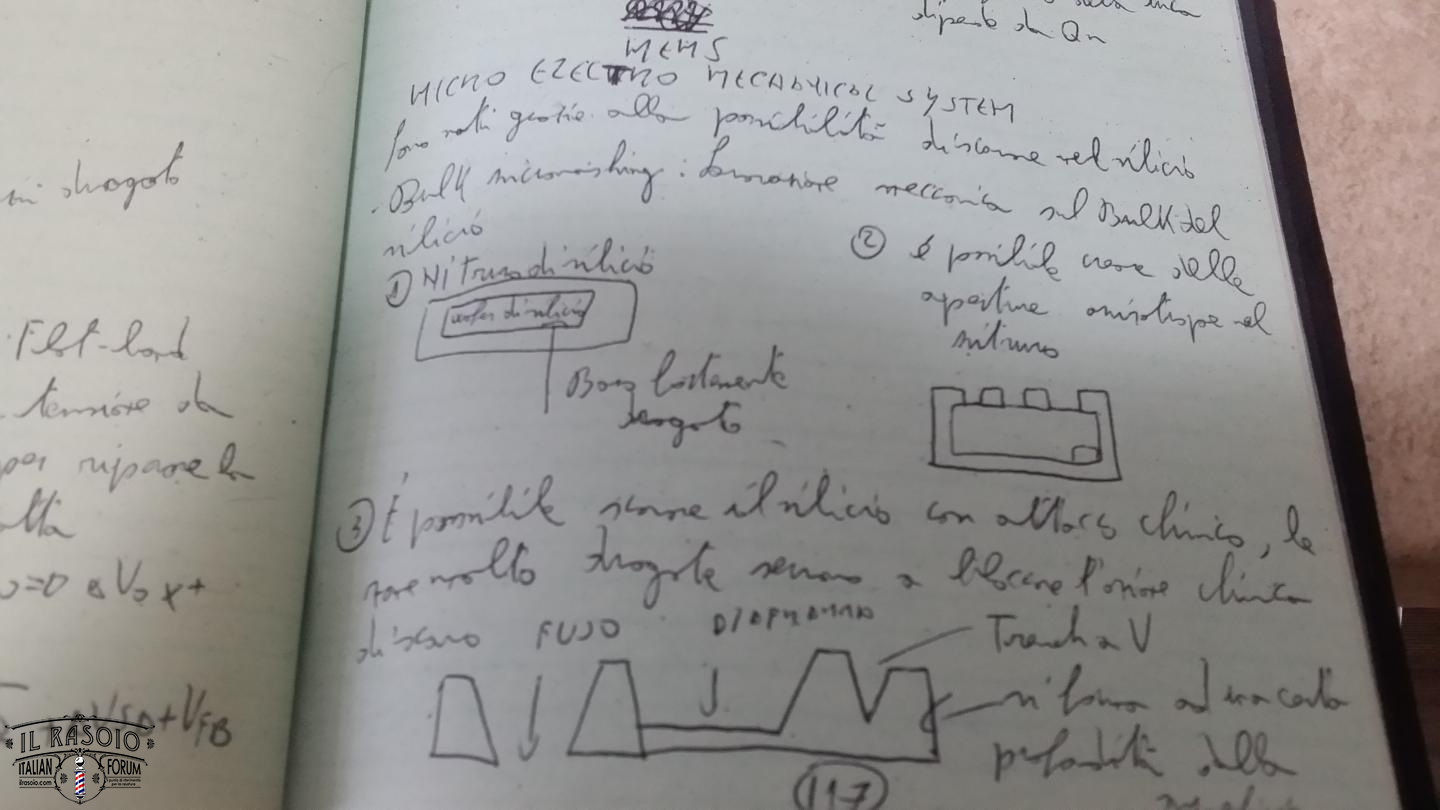 in drogato
Flat-band
tensione da
per riparare la
+VFB
dipende da Qn
MEMS
MICRO ELECTRO MECHANICAL SYSTEM
sono nati grazie alla possibilità di scavare nel silicio
- Bulk micromashing: lavorazione meccanica sul Bulk del
silicio
① Nitruro di silicio
wafer di silicio
drogato
② è possibile creare delle
aperture anisotrope nel
nitruro
③ È possibile scavare il silicio con attacco chimico, le
zone molto drogate servono a bloccare l'azione chimica
di scavo
FUSO
DIAFRAMMA
Trench a V
si forma ad una certa
profondità della
117
IL RASOIO
ITALIAN FORUM
ilrasoio.com